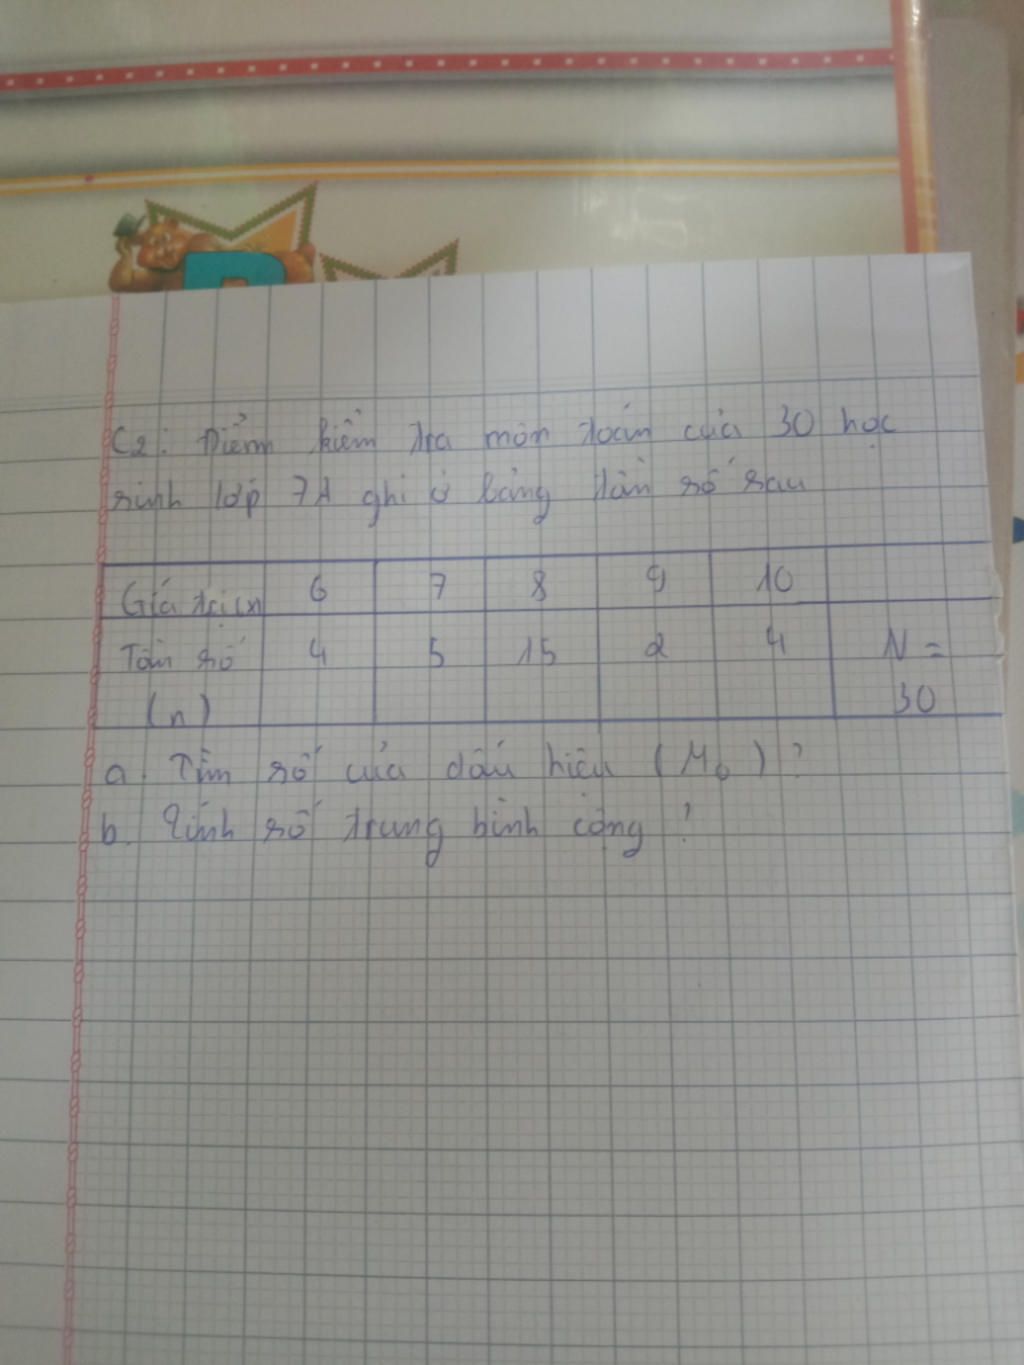 C2: Điểm kiểm tra môn toán của 30 học
sinh lớp 7A ghi ở bảng tần số sau
Giá trị (x) 6 7 8 9 10
Tần số (n) 4 5 15 2 4 N = 30
a. Tìm số của dấu hiệu (M0) ?
b. Tính số trung bình cộng ?